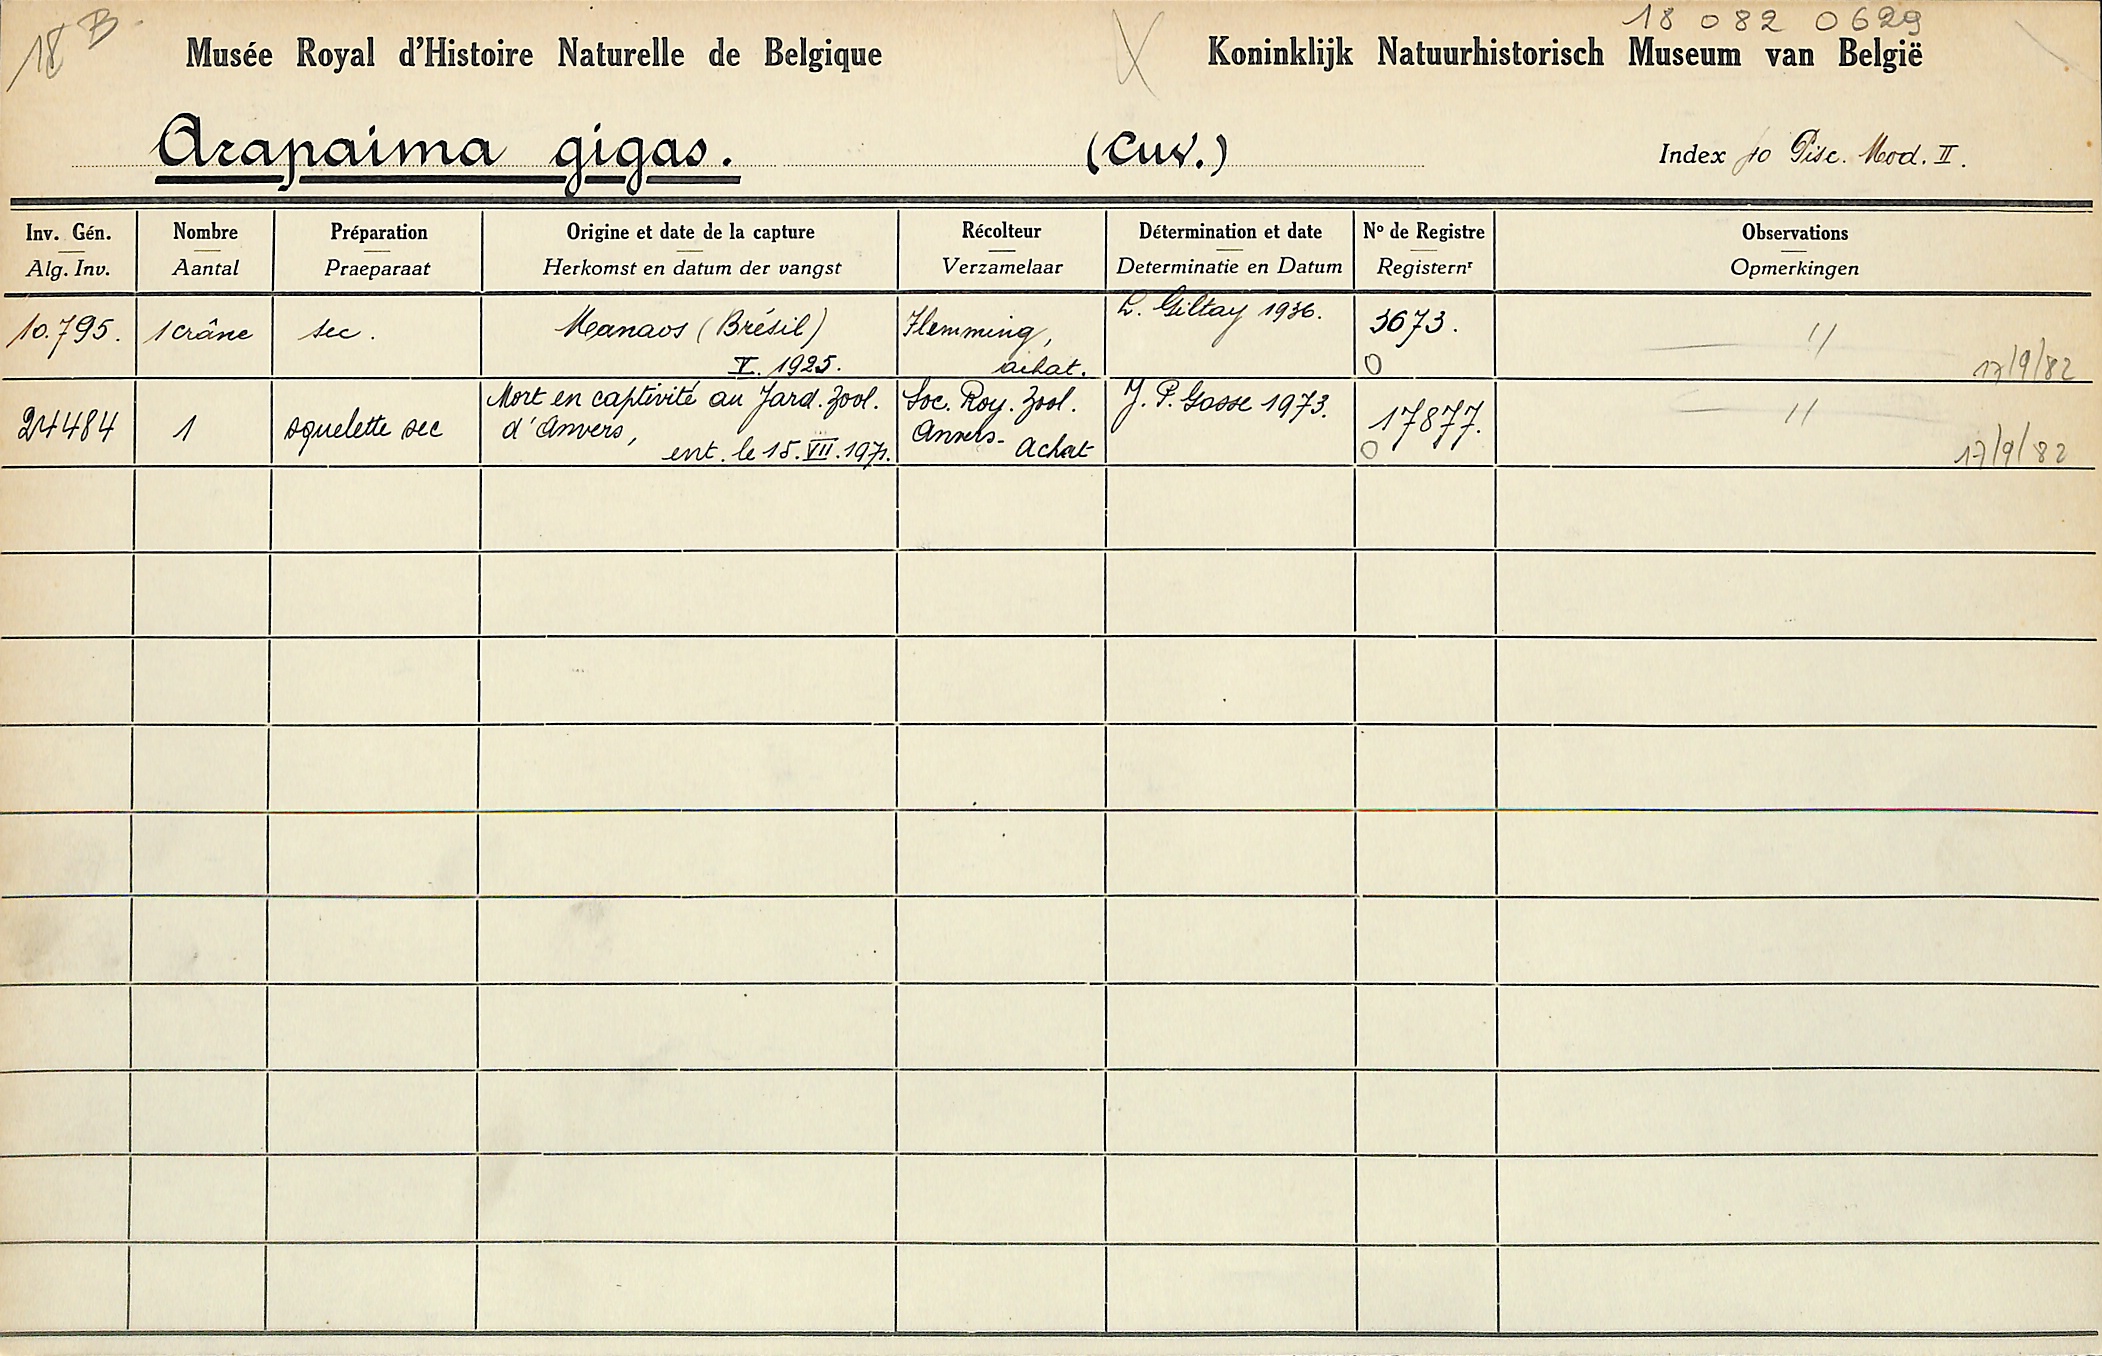 18 B
18 082 0629
Musée Royal d'Histoire Naturelle de Belgique
Koninklijk Natuurhistorisch Museum van België
Arapaima gigas. (Cuv.)
Index 10 Pisc. Mod. II.
Inv. Gén. Nombre Préparation Origine et date de la capture Récolteur Détermination et date Nº de Registre Observations
Alg. Inv. Aantal Praeparaat Herkomst en datum der vangst Verzamelaar Determinatie en Datum Registernr Opmerkingen
10.795. 1 crâne sec. Manaos (Brésil) Flemming, L. Giltay 1936. 3673. //
V. 1925. achat. O 17/9/82
Mort en captivité au Jard. Zool. Soc. Roy. Zool. J. P. Gosse 1973.
24484 1 squelette sec d'Anvers, Anvers- 17877. //
ent. le 15. VII. 1971. Achat O 17/9/82